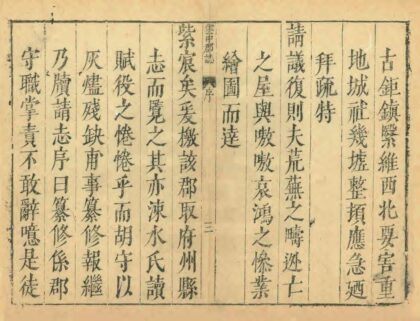 古鉅鎮繄維西北要害重
地城社幾墟整頓應急廼
拜疏特
請議復則夫荒蕪之疇逃亡
之屋與嗷嗷哀鴻之慘業
繪圖而達
紫宸矣爰檄該郡取府州縣
志而覽之其亦涑水氏讀
賦役之惓惓乎而胡守以
灰燼殘缺甫事纂修報繼
乃牘請志序曰纂修係郡
守職掌責不敢辭噫是徒
序
三